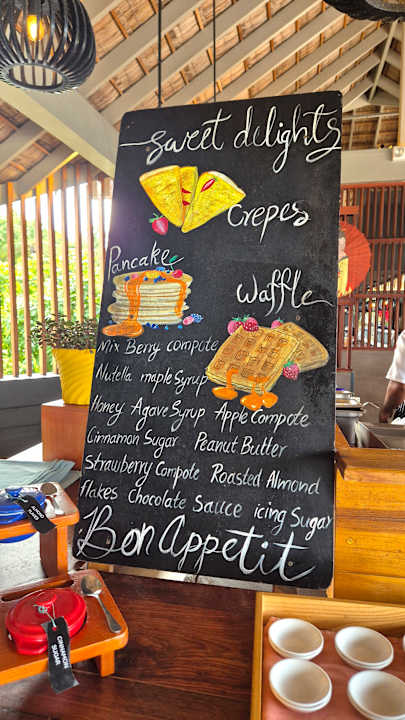 sweet delights
Crepes
Pancake
Waffle
Mix Berry compote
Nutella maple Syrup
Honey Agave Syrup Apple compote
Cinnamon Sugar Peanut Butter
Strawberry Compote Roasted Almond
Flakes chocolate Sauce icing Sugar
Bon Appetit
ALMOND
FLAKES
CINNAMON
SUGAR